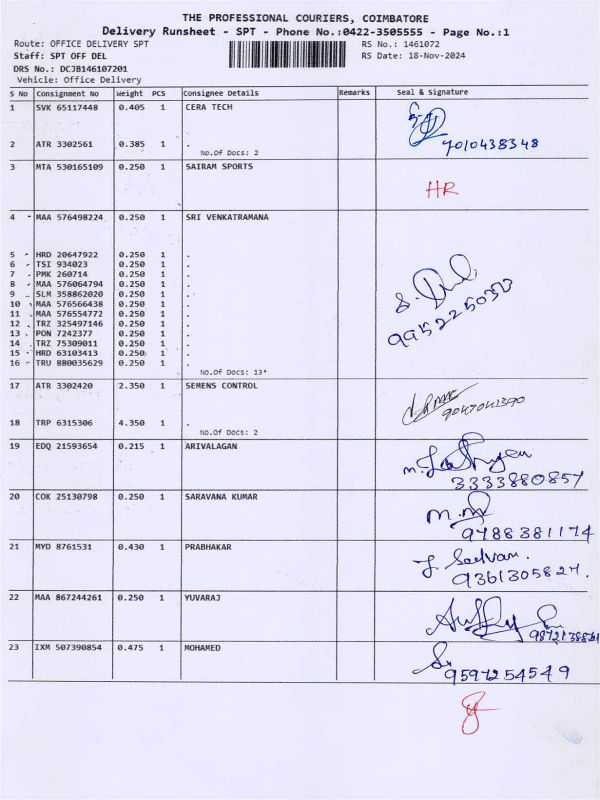 THE PROFESSIONAL COURIERS, COIMBATORE
Delivery Runsheet - SPT - Phone No.:0422-3505555 - Page No.:1
Route: OFFICE DELIVERY SPT RS No.: 1461072
Staff: SPT OFF DEL RS Date: 18-Nov-2024
DRS No.: DCJB146107201
Vehicle: Office Delivery
S No Consignment No Weight PCS Consignee Details Remarks Seal & Signature
1 SVK 65117448 0.405 1 CERA TECH
2 ATR 3302561 0.385 1 . 7010438348
No.Of Docs: 2
3 MTA 530165109 0.250 1 SAIRAM SPORTS
HR
4 MAA 576498224 0.250 1 SRI VENKATRAMANA
5 HRD 20647922 0.250 1 .
6 TSI 934023 0.250 1 .
7 PMK 260714 0.250 1 .
8 MAA 576064794 0.250 1 .
9 SLM 358862020 0.250 1 .
10 MAA 576566438 0.250 1 .
11 MAA 576554772 0.250 1 .
12 TRZ 325497146 0.250 1 .
13 PON 7242377 0.250 1 .
14 TRZ 75309011 0.250 1 .
15 HRD 63103413 0.250 1 .
16 TRU 880035629 0.250 1 .
No.Of Docs: 13
17 ATR 3302420 2.350 1 SEMENS CONTROL
18 TRP 6315306 4.350 1 .
No.Of Docs: 2
19 EDQ 21593654 0.215 1 ARIVALAGAN
3333880857
20 COK 25130798 0.250 1 SARAVANA KUMAR
9788381174
21 MYD 8761531 0.430 1 PRABHAKAR
9361305827.
22 MAA 867244261 0.250 1 YUVARAJ
23 IXM 507390854 0.475 1 MOHAMED
9597254549